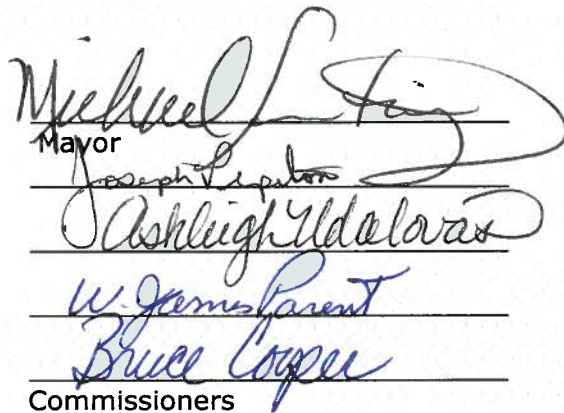 Michael
Mayor
Joseph
Ashleigh Udalovas
W. James Parent
Bruce Cooper
Commissioners